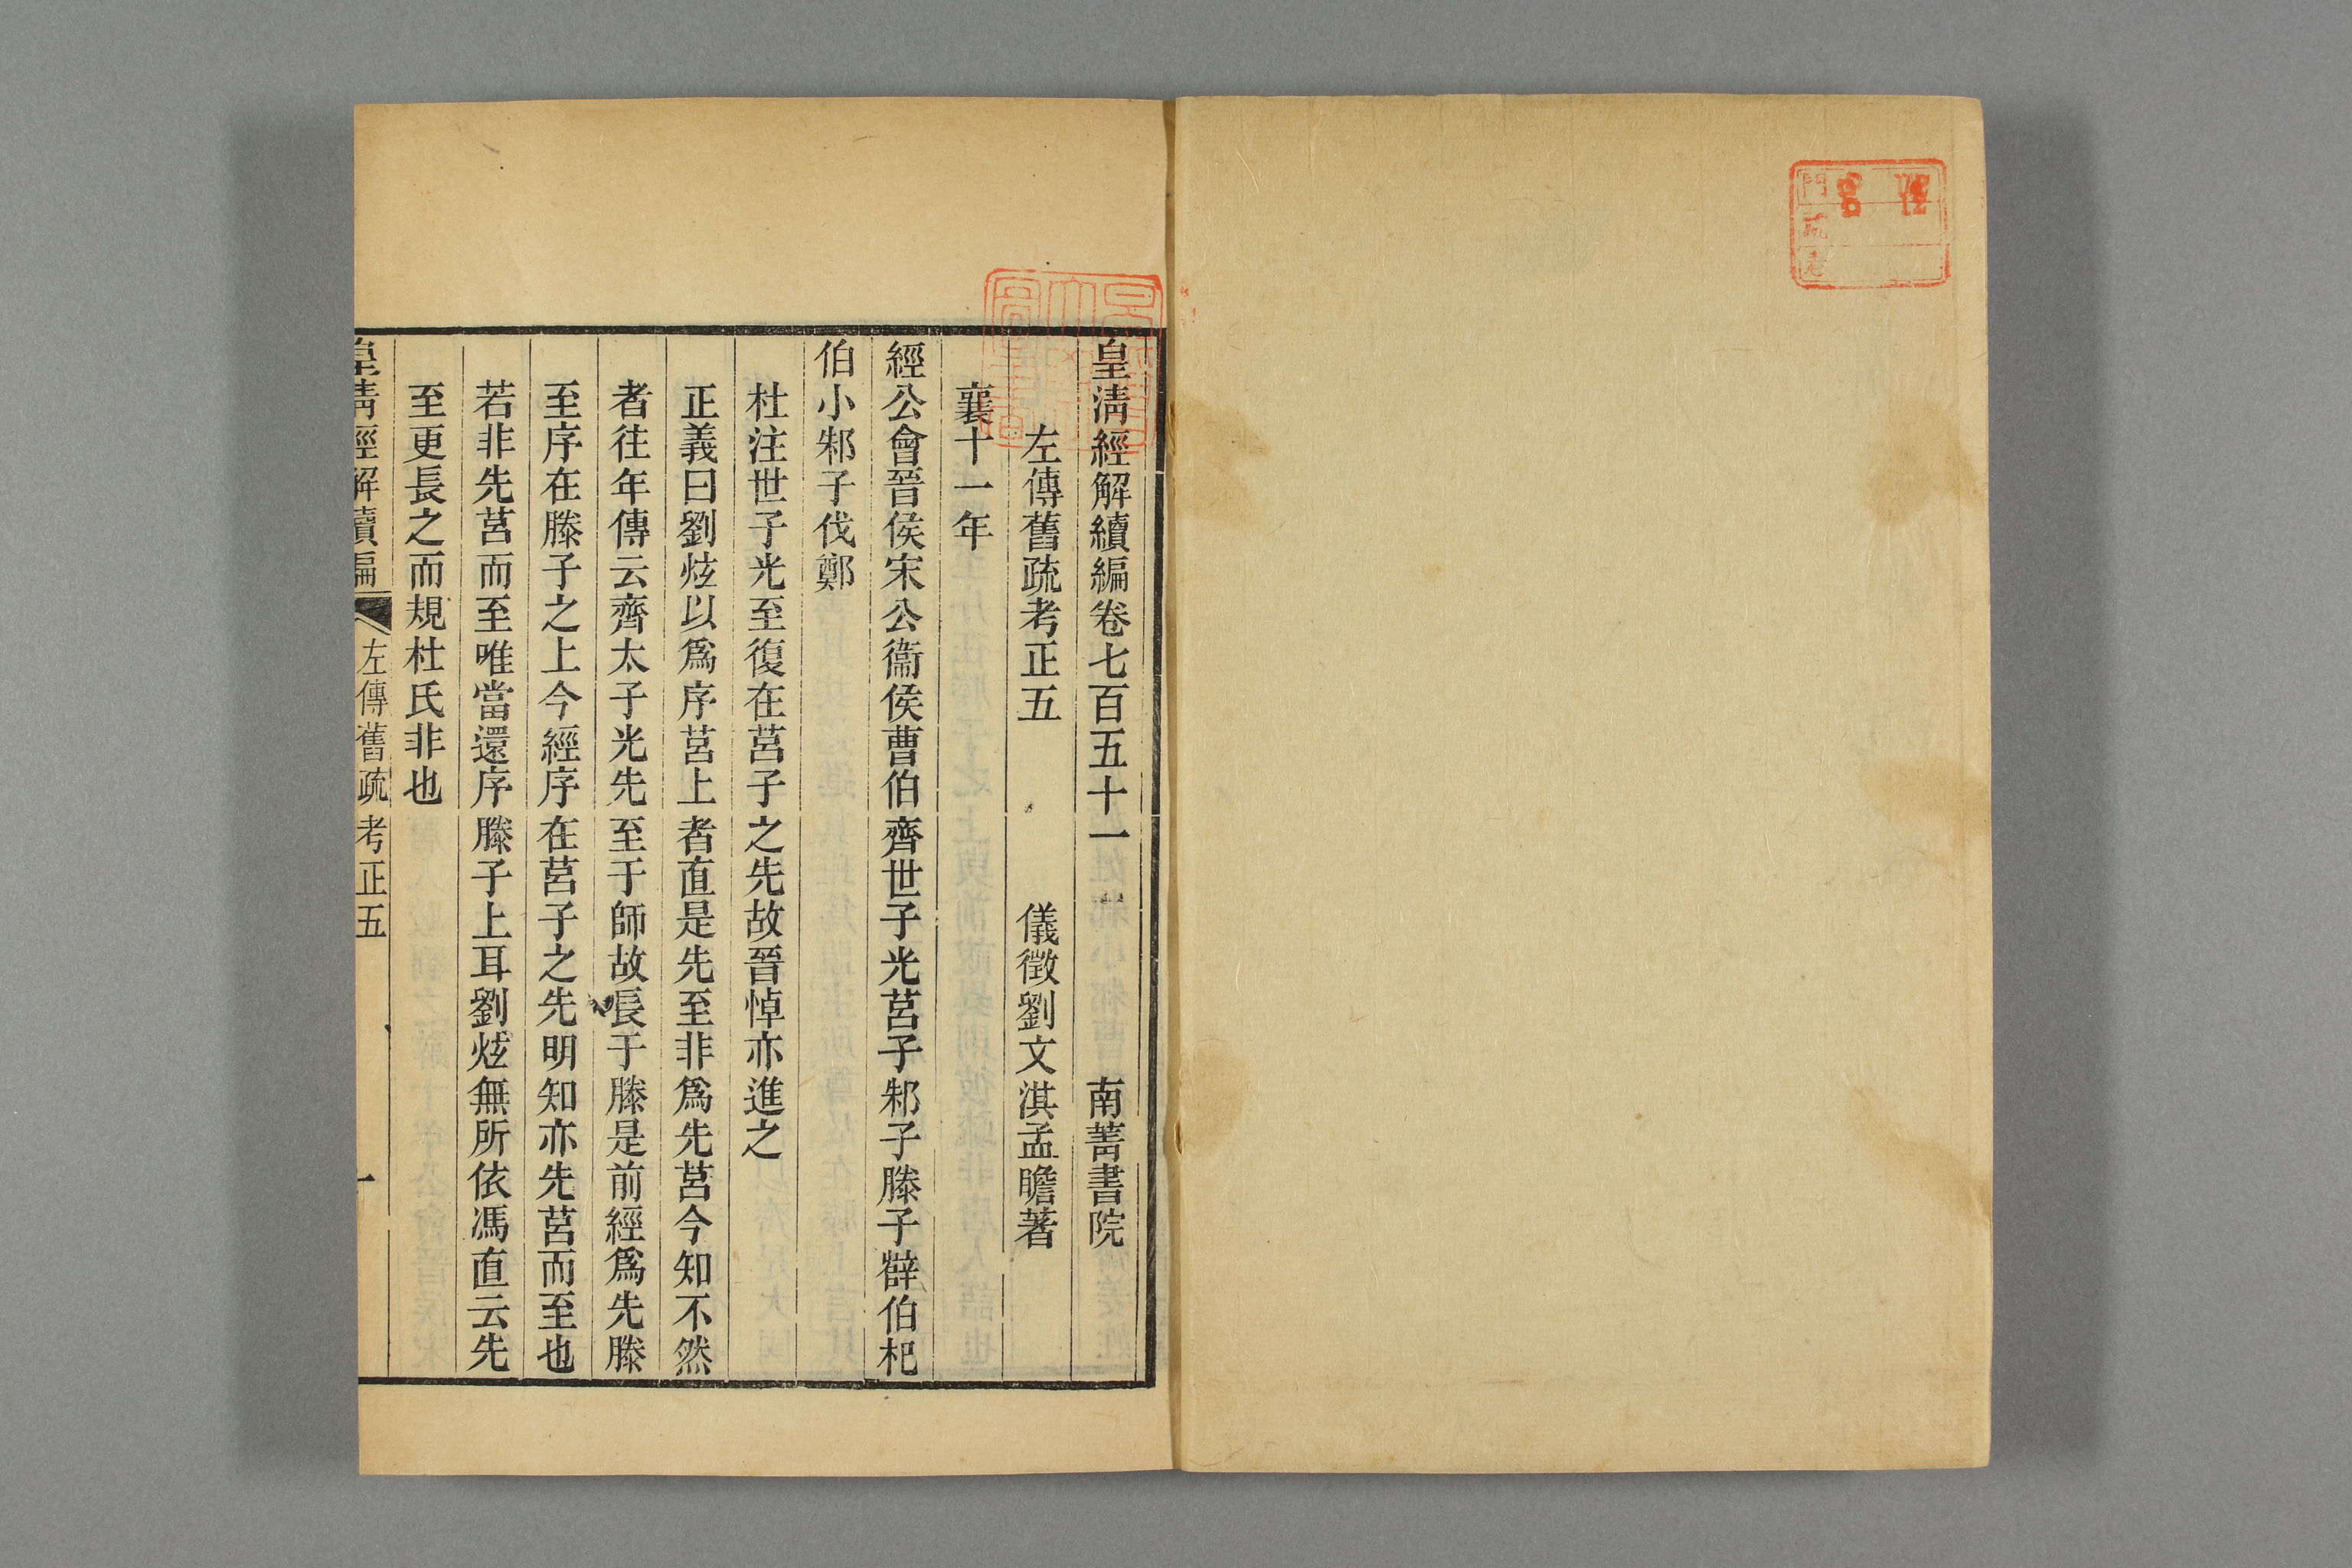 皇淸經解續編卷七百五十一　南菁書院
左傳舊疏考正五　儀徵劉文淇孟瞻著
襄十一年
經公會晉侯宋公衞侯曹伯齊世子光莒子邾子滕子薛伯杞
伯小邾子伐鄭
杜注世子光至復在莒子之先故晉悼亦進之
正義曰劉炫以爲序莒上者直是先至非爲先莒今知不然
者往年傳云齊太子光先至于師故長于滕是前經爲先滕
至序在滕子之上今經序在莒子之先明知亦先莒而至也
若非先莒而至唯當還序滕子上耳劉炫無所依馮直云先
至更長之而規杜氏非也
皇淸經解續編　左傳舊疏考正五　一